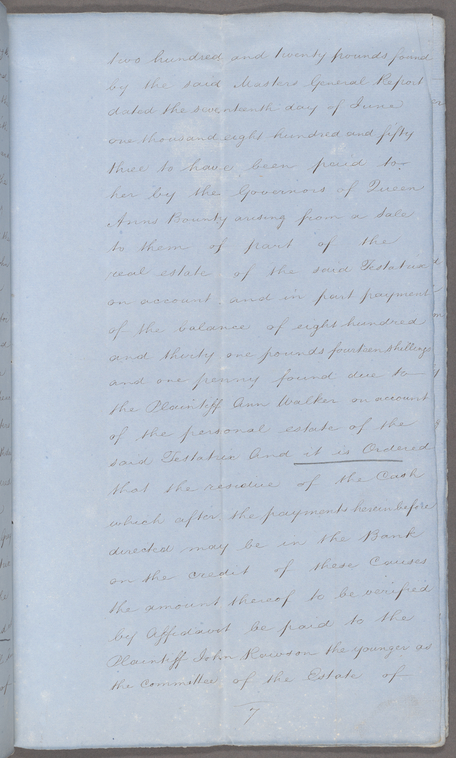 two hundred and twenty pounds found
by the said Masters General Report
dated the seventeenth day of June
one thousand eight hundred and fifty
three to have been paid to
her by the Governors of Queen
Anns Bounty arising from a sale
to them of part of the
real estate of the said Testatrix
on account and in part payment
of the balance of eight hundred
and thirty one pounds fourteen shillings
and one penny found due to
the Plaintiff Ann Walker on account
of the personal estate of the
said Testatrix And it is Ordered
that the residue of the Cash
which after the payments hereinbefore
directed may be in the Bank
on the credit of these Causes
the amount thereof to be verified
by Affidavit be paid to the
Plaintiff John Rawson the younger as
the Committee of the Estate of
7